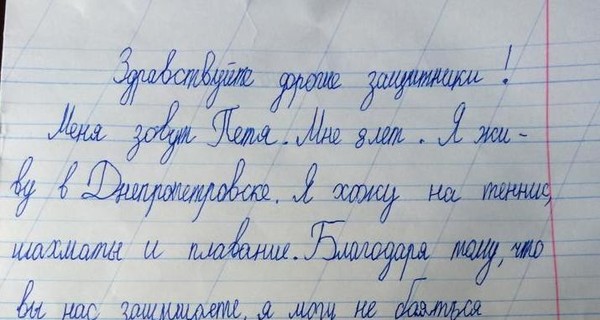 Здравствуйте дорогие защитники!
Меня зовут Петя. Мне 8 лет. Я жи-
ву в Днепропетровске. Я хожу на теннис,
шахматы и плавание. Благодаря тому, что
вы нас защищаете, я могу не бояться